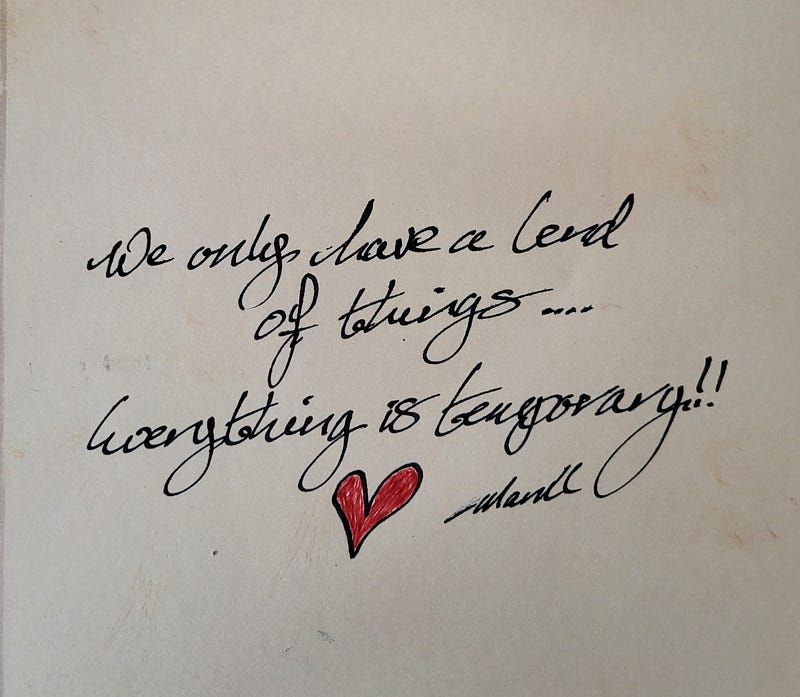 We only have a lend
of things....
Everything is temporary!!